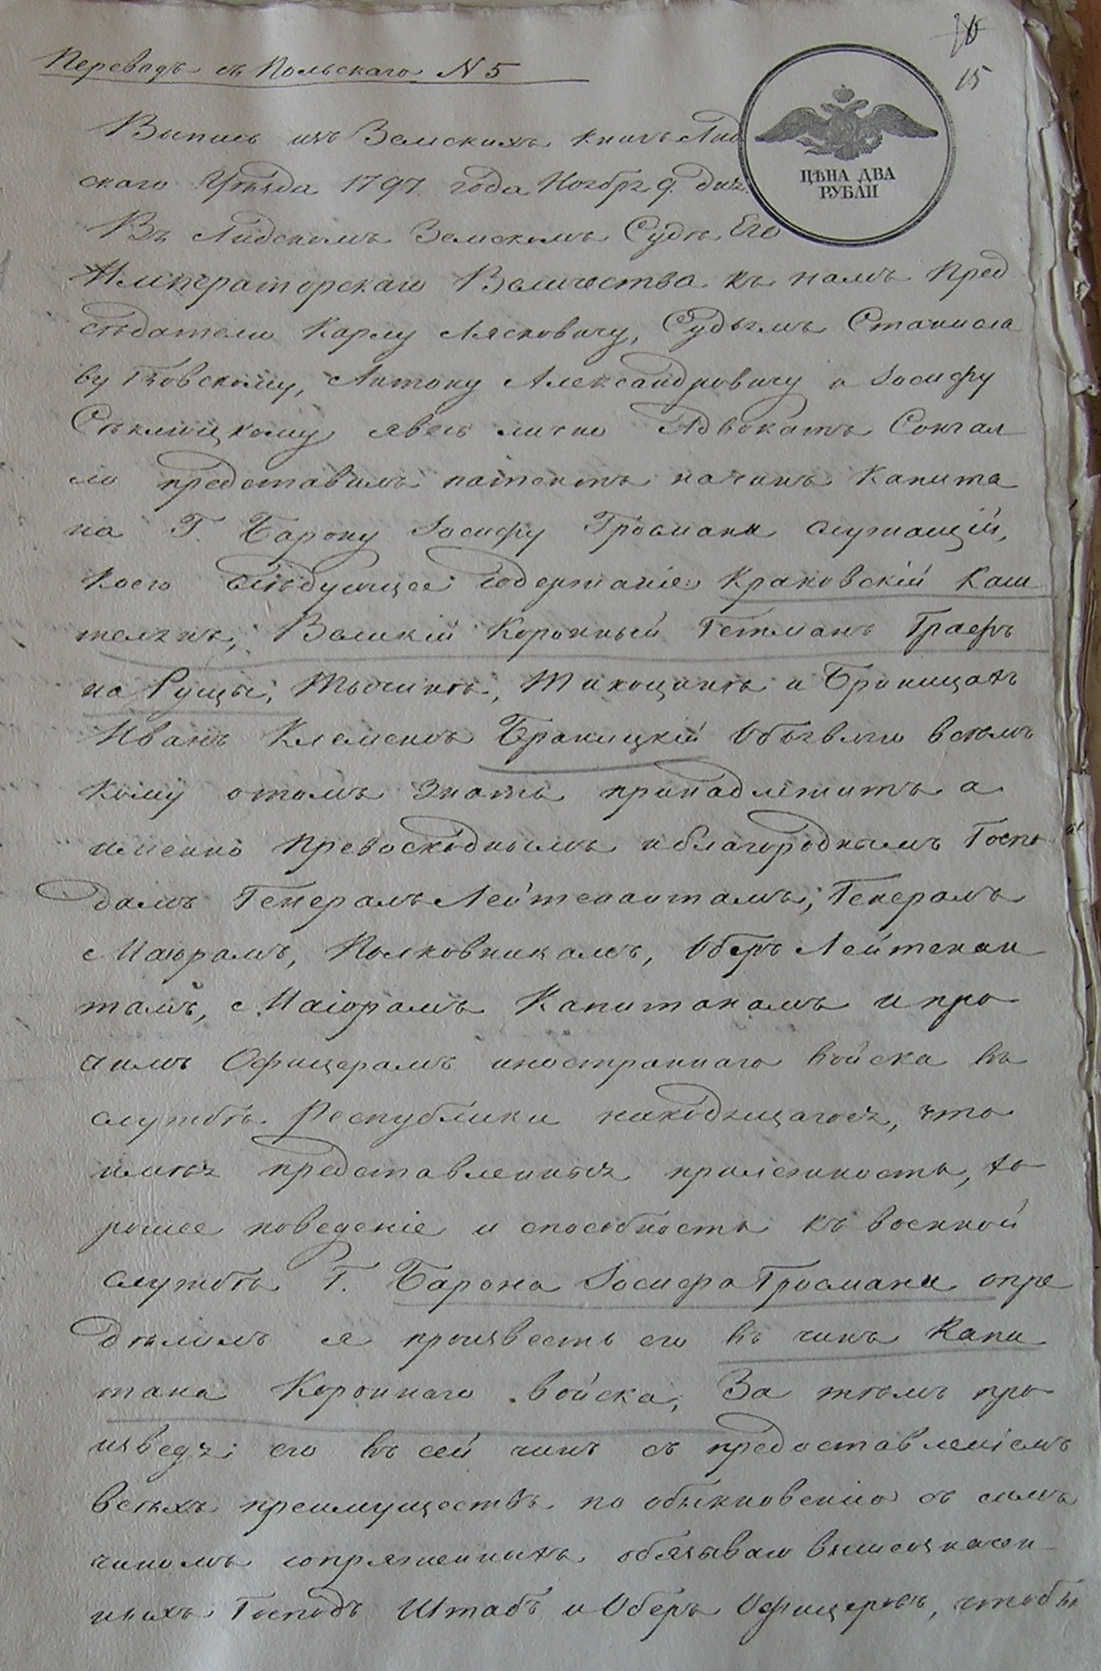 Переводъ съ Польскаго N 5
15
ЦѢНА ДВА
РУБЛИ
Выпись изъ Земскихъ книгъ Лид
скаго Уѣзда 1797 года Ноября 9. дня.
Въ Лидскомъ Земскомъ Судѣ Его
Императорскаго Величества къ намъ Пред
сѣдателю Карлу Лясковичу, Судьямъ Станисла
ву Антону Александровичу и Іосифу
явясь лично Адвокатъ
представилъ патентъ на чинъ Капита
на Г. Барону Іосифу Гросмани служащій,
коего слѣдующее содержаніе: Краковскій Каш
телянъ, Великій Коронный Гетманъ Графъ
на Рущы, Тыкоцинѣ и Браницахъ
Иванъ Клеменсъ Браницкій Объявляю всѣмъ
кому о томъ знать принадлежитъ а
именно Превосходнымъ и благороднымъ Госпо
дамъ Генералъ Лейтенантамъ, Генералъ
Маіорамъ, Полковникамъ, Оберъ Лейтенан
тамъ, Маіорамъ Капитанамъ и про
чимъ Офицерамъ иностраннаго войска въ
службѣ Республики находящагося, что
имѣя представленныя прилѣжность, хо
рошее поведеніе и способность къ военной
службѣ Г. Барона Іосифа Гросмани опре
дѣлилъ я произвесть его въ чинъ Капи
тана Короннаго войска, За тѣмъ про
изведя его въ сей чинъ съ предоставленіемъ
всѣхъ преимуществъ по обыкновенію съ симъ
чиномъ сопряженныхъ обязываю вышеозначен
ныхъ Господъ Штабъ и Оберъ Офицеровъ, чтобы